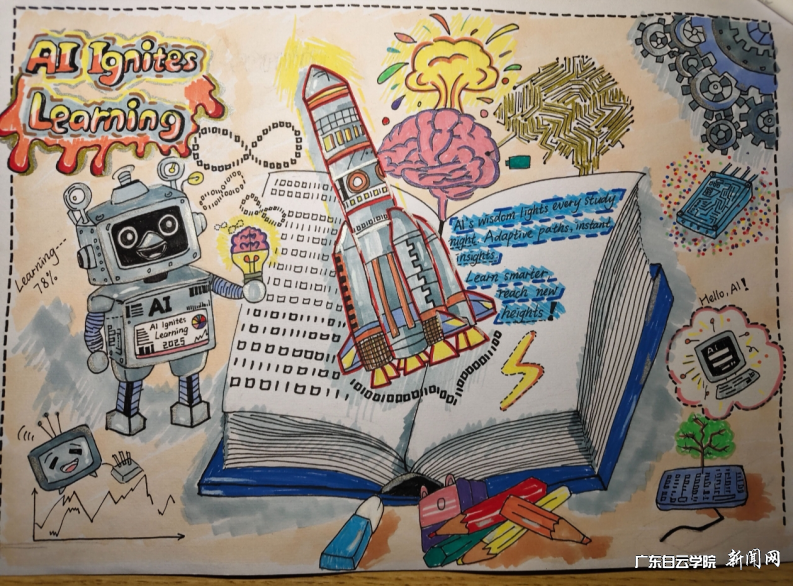 AI Ignites
Learning
Learning...
78%
AI
AI Ignites
Learning
2025
AI's wisdom lights every study
night. Adaptive paths, instant
insights.
Learn smarter,
reach new
heights!
Hello, AI!
AI
广东白云学院 新闻网